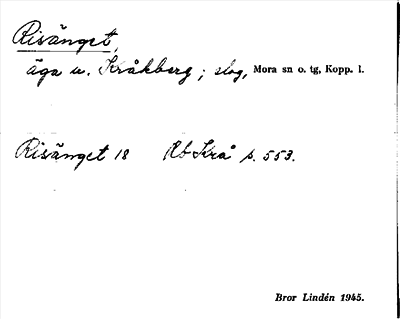 Risänget,
äga u. Kråkberg; slog, Mora sn o. tg, Kopp. l.
Risänget 18 Rb Krå s. 553.
Bror Lindén 1945.